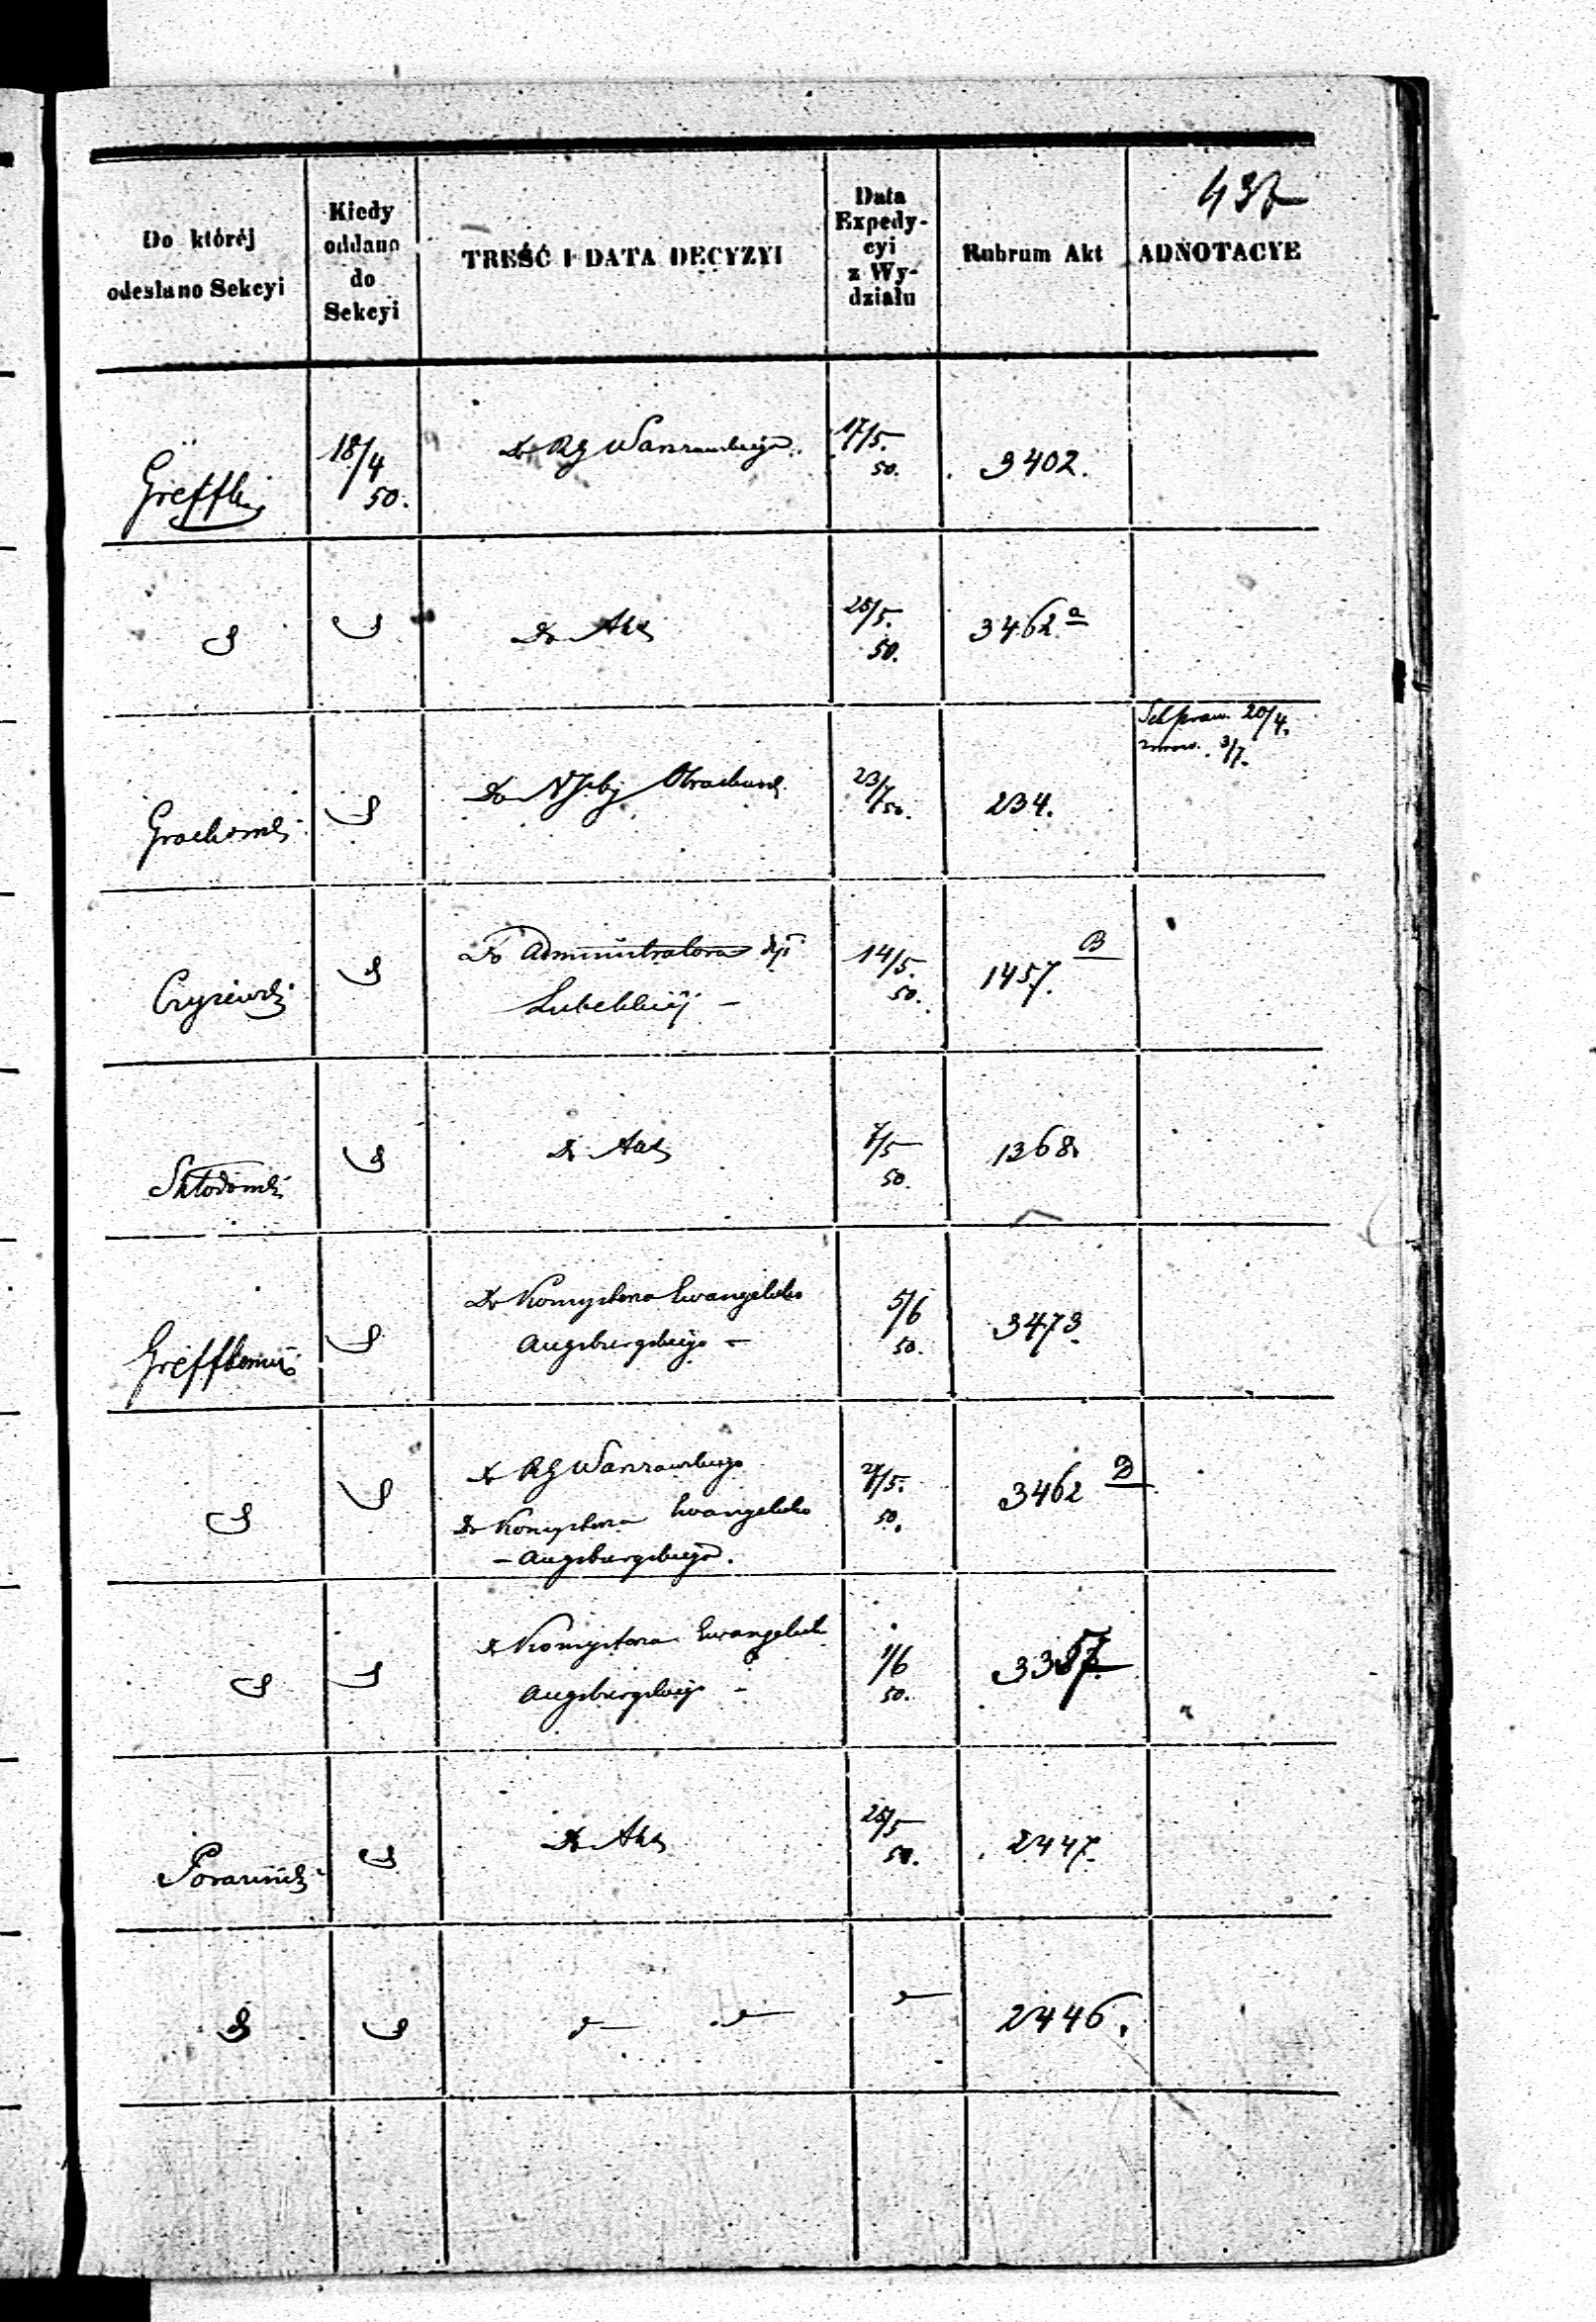 437
Do któréj
odesłano Sekcyi
Kiedy
oddano
do
Sekcyi
TREŚĆ I DATA DECYZYI
Data
Expedy-
cyi
z Wy-
działu
Rubrum Akt
ADNOTACYE
18/4
50.
Do RG Warszawskiego.
17/5.
50.
3402.
Do Akt
50.
3462 a
20/4.
3/7.
Grochowski
Do
23/7
50.
234.
Czyżewski
Do Administratora Dyi
Lubelskiej -
14/5.
50.
1457. B
Skłodowski
Do Akt
7/5
50.
1368.
Do Konsystorza Ewangelicko
Augsburgskiego -
5/6
50.
3473.
Do RG Warszawskiego
Do Konsystorza Ewangelicko
- Augsburgskiego.
50.
3462 D
Do Konsystorza Ewangelick
Augsburgskiego -
1/6
50.
Do Akt
50.
2447.
2446.